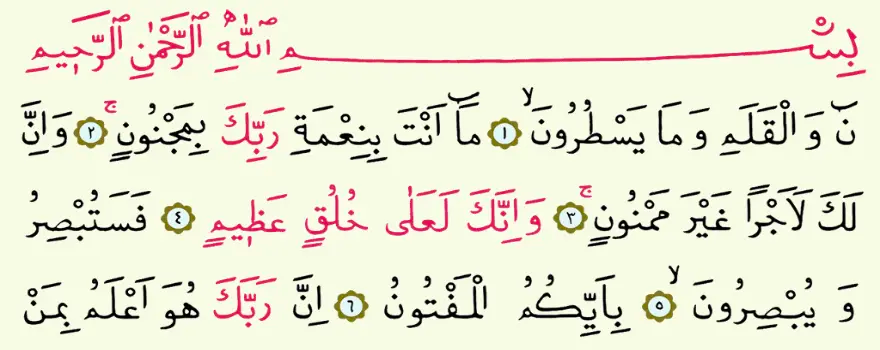 بِسْمِ اللهِ الرَّحْمٰنِ الرَّح۪يمِ
نٓ وَالْقَلَمِ وَمَا يَسْطُرُونَۙ ﴿١﴾ مَٓا اَنْتَ بِنِعْمَةِ رَبِّكَ بِمَجْنُونٍۚ ﴿٢﴾ وَاِنَّ
لَكَ لَاَجْرًا غَيْرَ مَمْنُونٍۚ ﴿٣﴾ وَاِنَّكَ لَعَلٰى خُلُقٍ عَظ۪يمٍ ﴿٤﴾ فَسَتُبْصِرُ
وَيُبْصِرُونَۙ ﴿٥﴾ بِاَيِّكُمُ الْمَفْتُونُ ﴿٦﴾ اِنَّ رَبَّكَ هُوَ اَعْلَمُ بِمَنْ